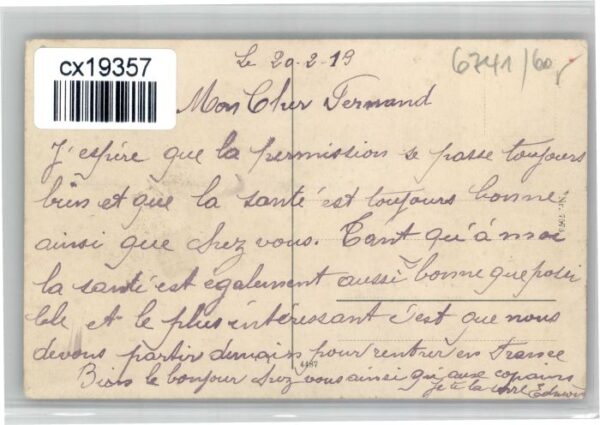 cx19357
6741/60,-
Le 20-2-19
Mon Cher Fernand
J'espére que la permission se passe toujours
bien et que la santé est toujours bonne
ainsi que chez vous. Tant qu'à moi
la santé est également aussi bonne que possi
ble et le plus intéressant c'est que nous
devons partir demain pour rentrer en France
4487
Biens le bonjour chez vous ainsi qu'aux copains
Je te la serre Edmond